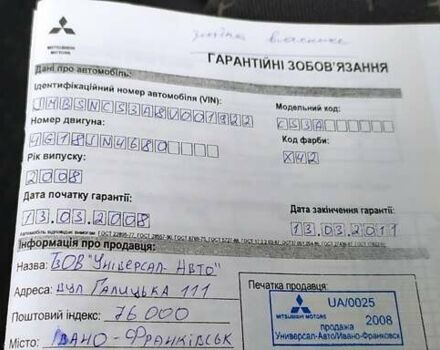 MITSUBISHI
MOTORS
зміна власника
ГАРАНТІЙНІ ЗОБОВ'ЯЗАННЯ
Дані про автомобіль:
Ідентифікаційний номер автомобіля (VIN):
Модельний код:
JMBSNCS3A8U001922
CS3A
Номер двигуна:
Код фарби:
4G18JN4680
X42
Рік випуску:
2008
Дата початку гарантії:
Дата закінчення гарантії:
13.03.2008
13.03.2011
Автомобіль відповідає вимогам:
Інформація про продавця:
Назва: ТОВ "Універсал-Авто"
Печатка продавця:
Адреса: вул Галицька 111
MITSUBISHI
MOTORS
UA/0025
2008
продажа
Універсал-Авто/Ивано-Франковск
Поштовий індекс: 76000
Місто: Івано-Франківськ